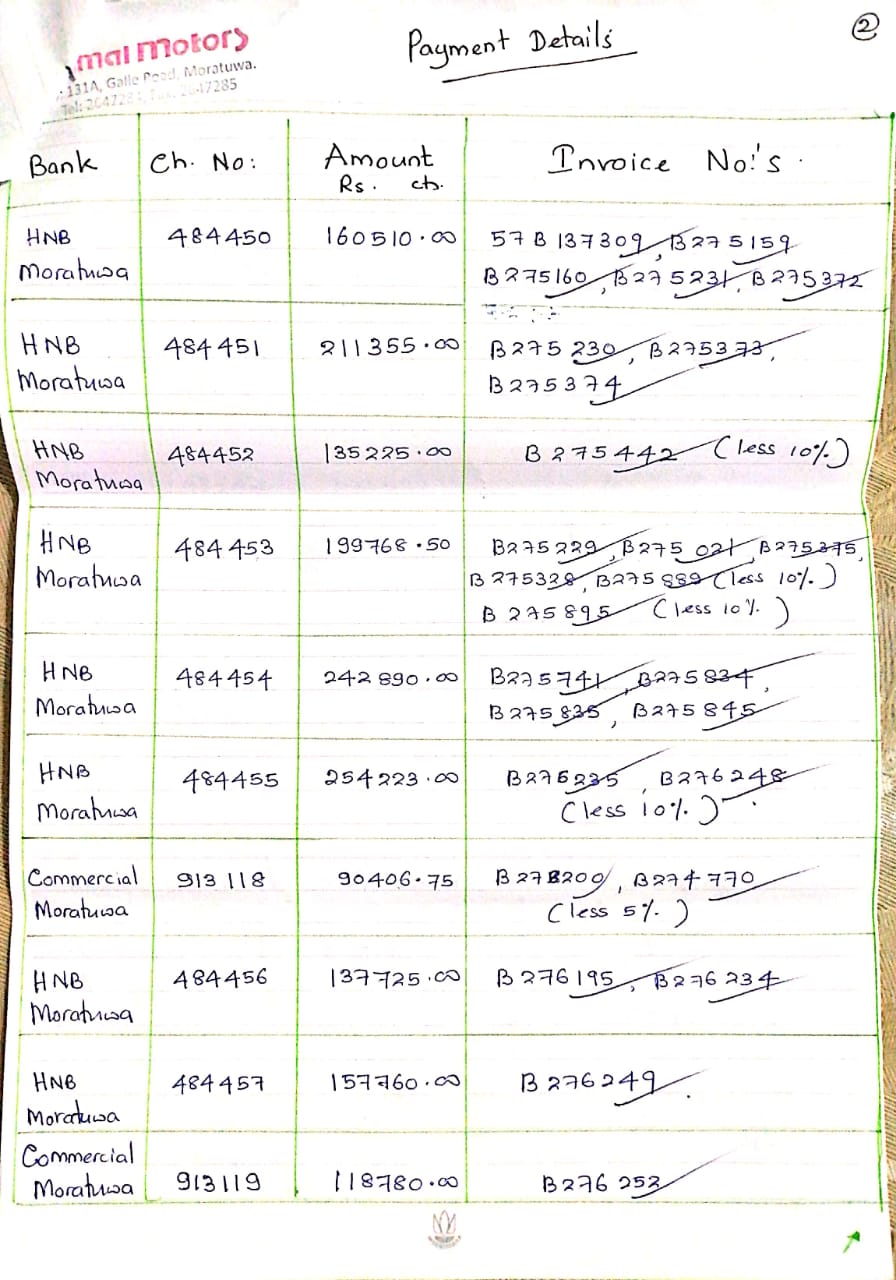 ②
Payment Details
mal Motors
131A, Galle Road, Moratuwa.
Bank Ch. No: Amount Invoice No!'s
Rs. cts.
HNB 484450 160510.00 57B137309, B275159
Moratuwa B275160, B275231, B275372
HNB 484451 211355.00 B275230, B275373,
Moratuwa B275374
HNB 484452 135225.00 B275442 (less 10%)
Moratuwa
HNB 484453 199768.50 B275229, B275021, B275375,
Moratuwa B275328, B275889 (less 10%)
B275895 (less 10%)
HNB 484454 242890.00 B275741, B275834,
Moratuwa B275835, B275845
HNB 484455 254223.00 B276235, B276248
Moratuwa (less 10%)
Commercial 913118 90406.75 B278200, B274770
Moratuwa (less 5%)
HNB 484456 137725.00 B276195, B276234
Moratuwa
HNB 484457 157760.00 B276249
Moratuwa
Commercial
Moratuwa 913119 118780.00 B276252